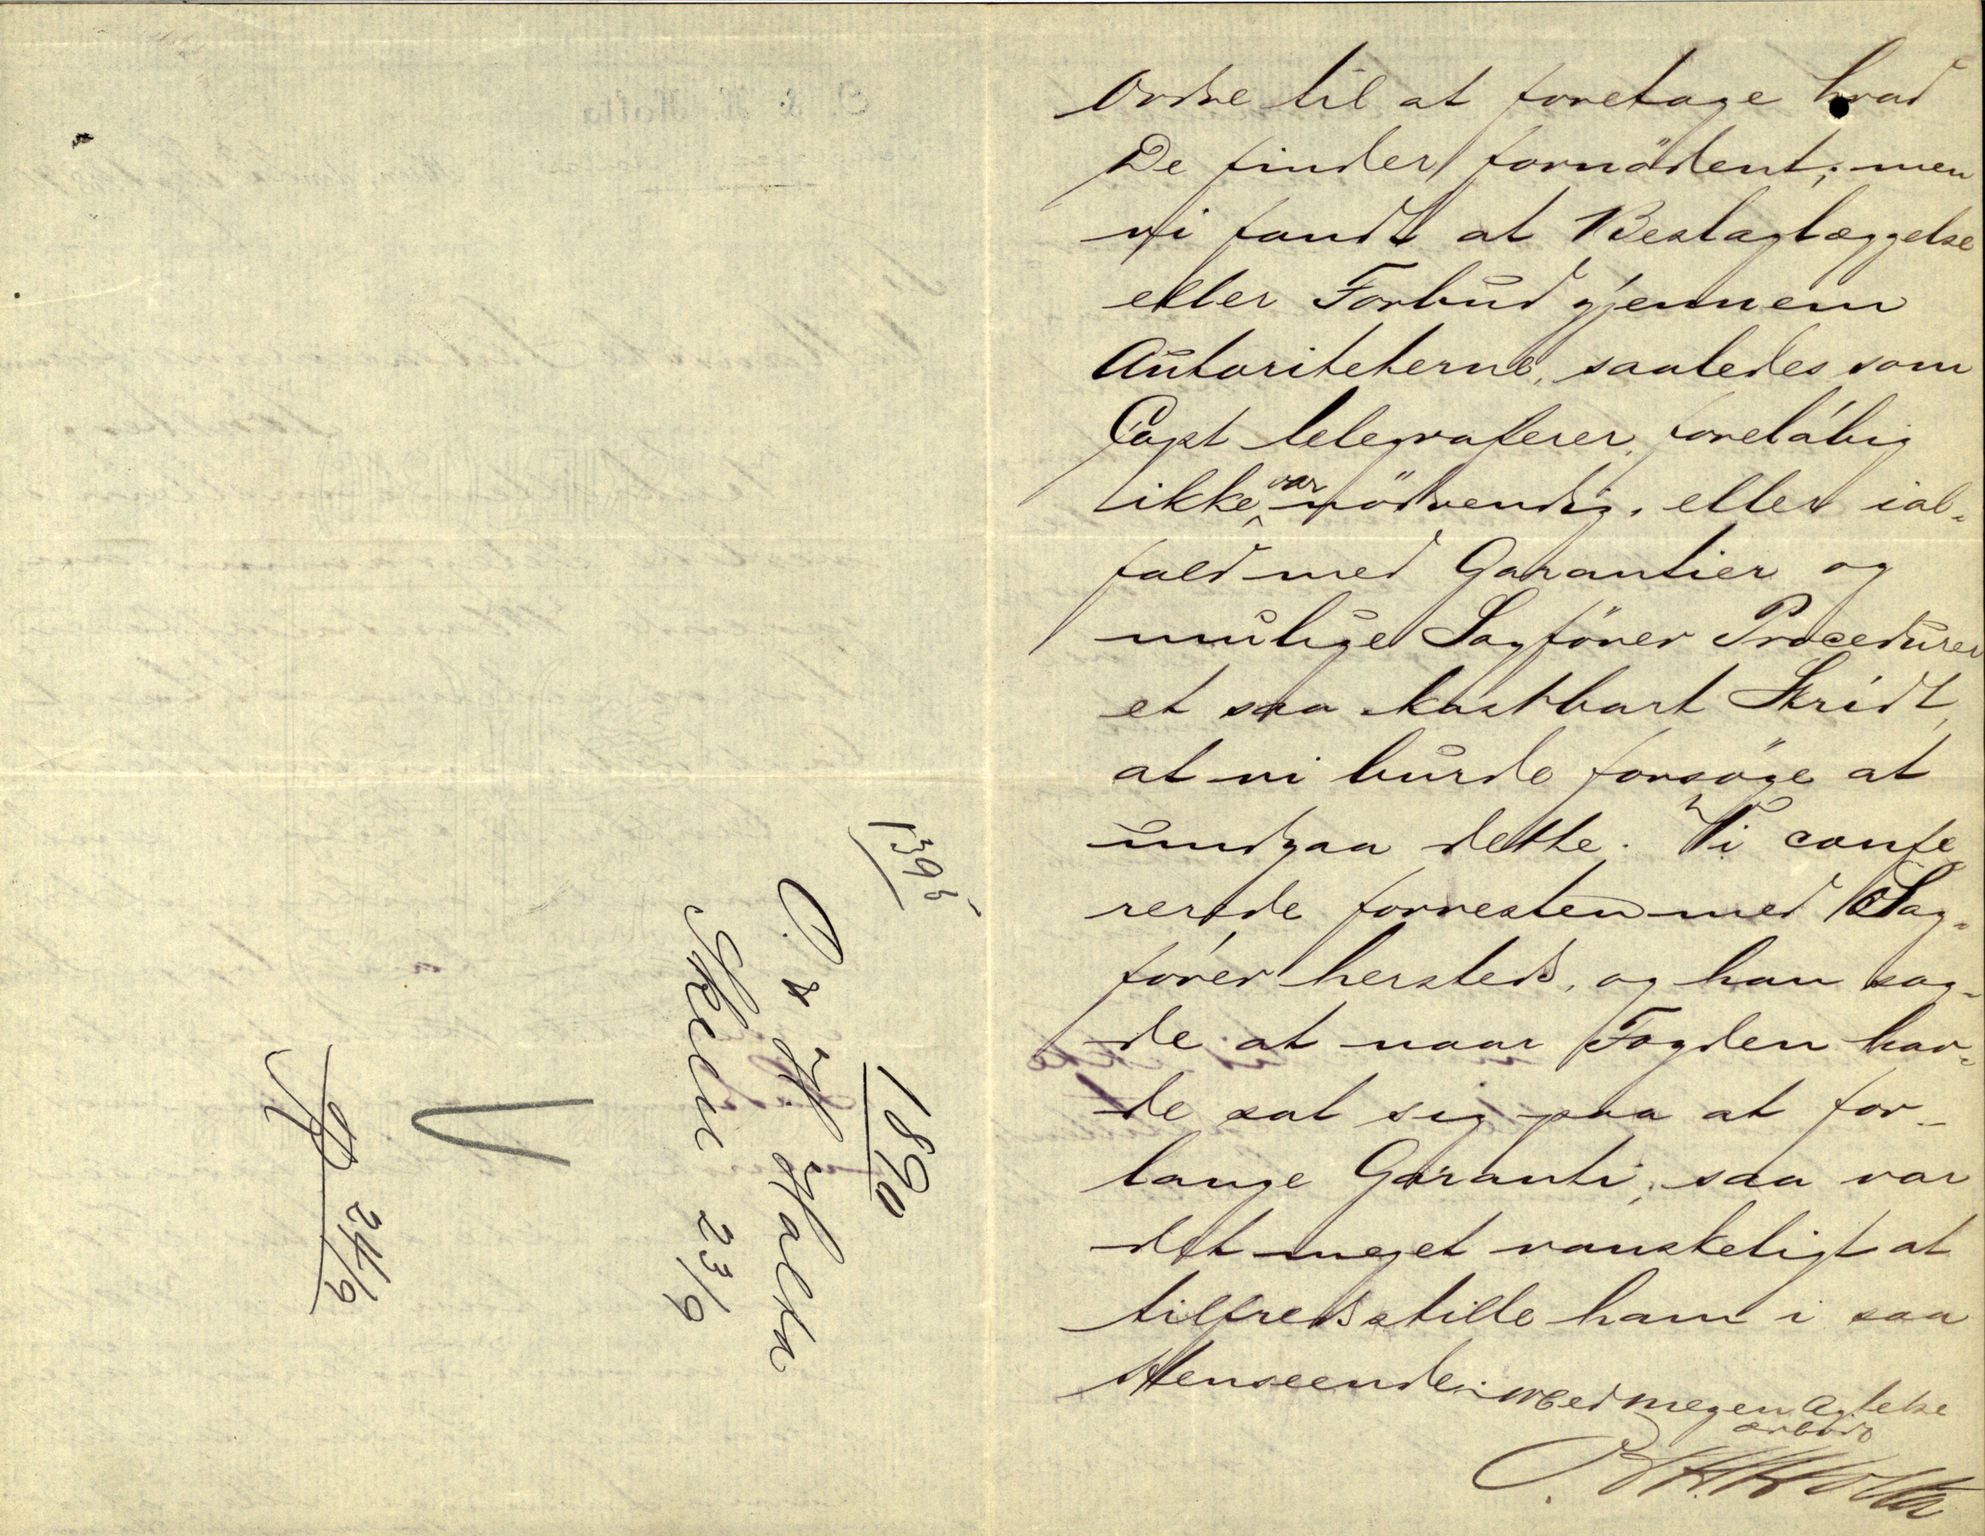 Ordre til at foretage hvad
De finder fornödent; men
vi fandt at Beslaglæggelse
eller Forbud gjennem
Autoriteterne, saaledes som
Capt telegraferer, foreløbig
ikke var nödvendig, eller ial-
fald med Garantier og
mulige Sagförer Procedurer
et saa kostbart Skridt,
at vi burde forsöge at
undgaa dette. Vi confe
rerede forresten med Sag-
fører hersteds, og han sag-
de at naar Fogden hav-
de sat sig paa at for-
lange Garanti, saa var
det meget vanskeligt at
tilfredsstille ham i saa
Henseende. Med megen Agtelse
ærbødig
O. & H. Holta
1395
1890
O. & H. Holta
Skien 23/9
24/9